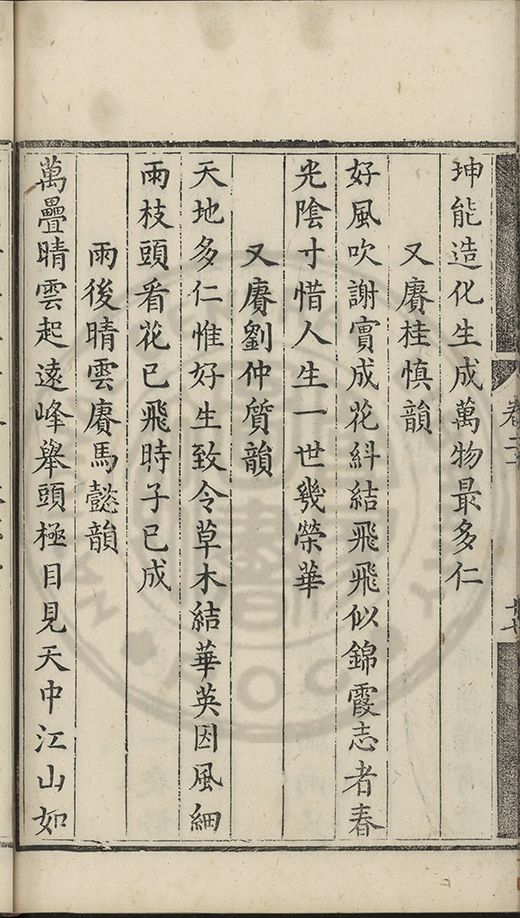 坤能造化生成萬物最多仁
又賡桂慎韻
好風吹謝實成花糾結飛飛似錦霞志者春
光陰寸惜人生一世幾榮華
又賡劉仲質韻
天地多仁惟好生致令草木結華英因風細
雨枝頭看花已飛時子已成
雨後晴雲賡馬懿韻
萬疊晴雲起遠峰舉頭極目見天中江山如